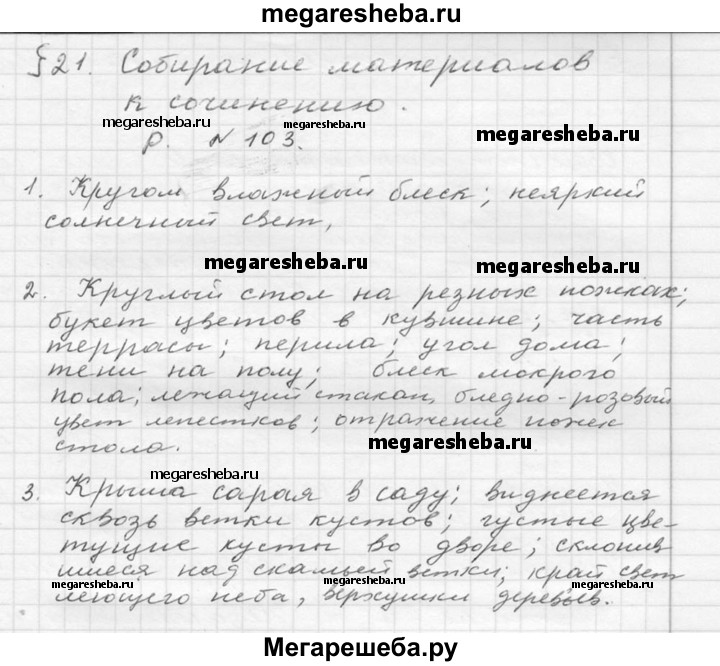 megaresheba.ru
§21. Собирание материалов
к сочинению.
megaresheba.ru megaresheba.ru megaresheba.ru
р. N 103.
1. Кругом влажный блеск; неяркий
солнечный свет,
megaresheba.ru megaresheba.ru
2. Круглый стол на резных ножках;
букет цветов в кувшине; часть
террасы; перила; угол дома;
тени на полу; блеск мокрого
пола; лежащий стакан, бледно-розовый
цвет лепестков; отражение ножек
стола.
megaresheba.ru
megaresheba.ru
3. Крыша сарая в саду; виднеется
сквозь ветки кустов; густые цве-
тущие кусты во дворе; склонив
шиеся над скамьей ветки; край свет
леющего неба, верхушки деревьев.
megaresheba.ru megaresheba.ru megaresheba.ru megaresheba.ru
Мегарешеба.ру